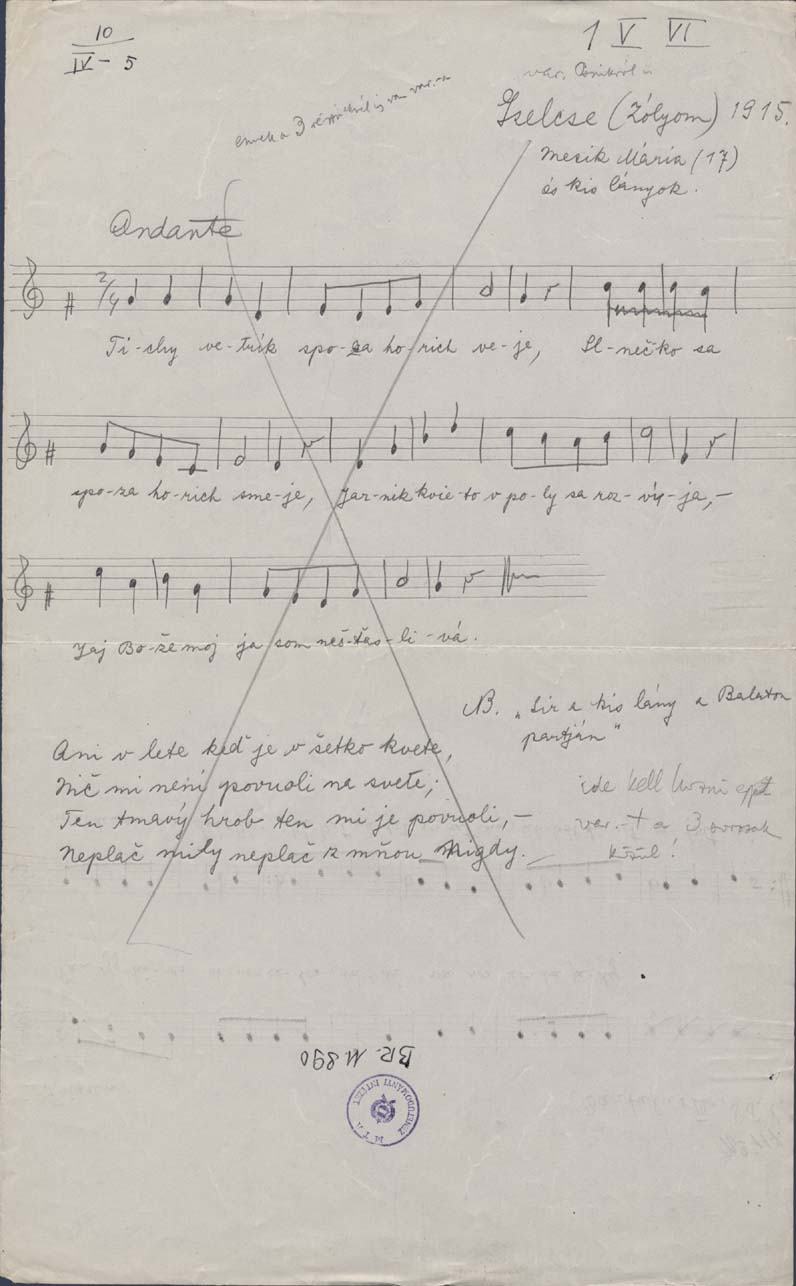 10
IV - 5
1 V VI
var.
Iselcse (Zólyom) 1915.
Mezik Mária (17)
és kis lányok.
Andante
2/4
Ti-chy ve-trík spo-za ho-rich ve-je, Sl-nečko sa
spo-za ho-rich sme-je, Jar-nik kvie-to v po-ly sa roz-víj-ja,-
Jaj Bo-že moj ja som neš-tas-li-vá.
NB. "Sir a kis lány a Balaton
partján"
Ani v lete keď je v šetko kvete,
Nič mi není povuoli na svete;
Ten tmavý hrob ten mi je povuoli,-
Neplač milý neplač z mňou Nigdy.
ide kell
var.-t a 3
közül!
BR. M. 890
M.T.A. ZENETUDOMÁNYI INTÉZET